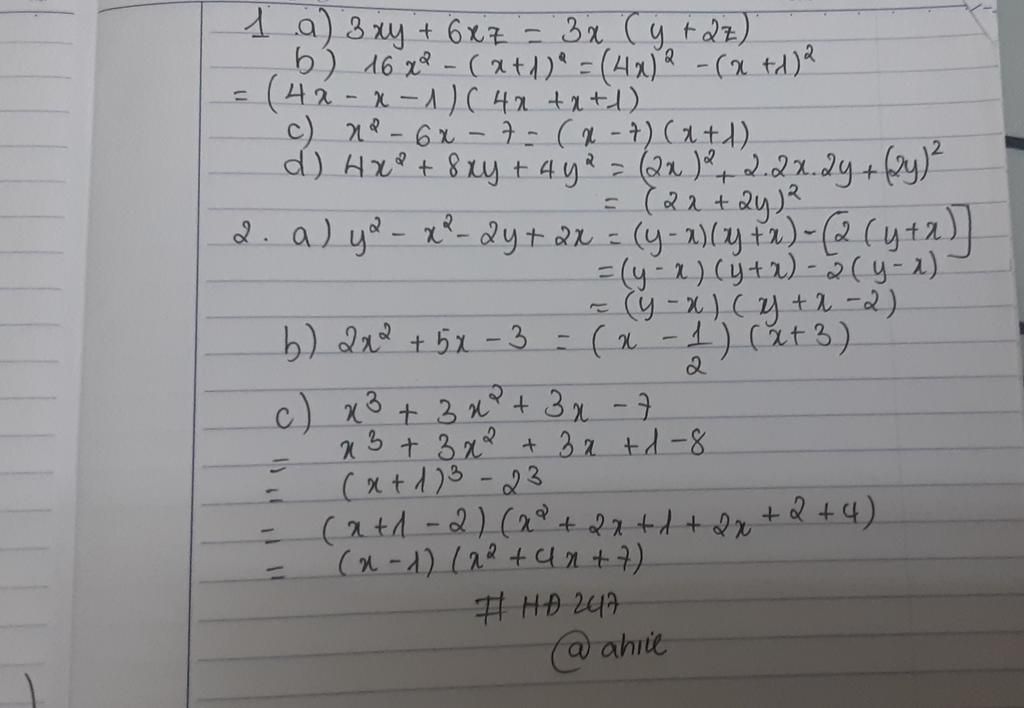 1 a) 3xy + 6xz = 3x (y + 2z)
b) 16x² - (x+1)² = (4x)² - (x+1)²
= (4x - x - 1)(4x + x + 1)
c) x² - 6x - 7 = (x - 7)(x + 1)
d) 4x² + 8xy + 4y² = (2x)² + 2.2x.2y + (2y)²
= (2x + 2y)²
2. a) y² - x² - 2y + 2x = (y-x)(y+x) - [2(y+x)]
= (y-x)(y+x) - 2(y-x)
= (y-x)(y+x-2)
b) 2x² + 5x - 3 = (x - 1/2)(x+3)
c) x³ + 3x² + 3x - 7
= x³ + 3x² + 3x + 1 - 8
= (x+1)³ - 2³
= (x+1-2)(x² + 2x + 1 + 2x + 2 + 4)
= (x-1)(x² + 4x + 7)
# HD 247